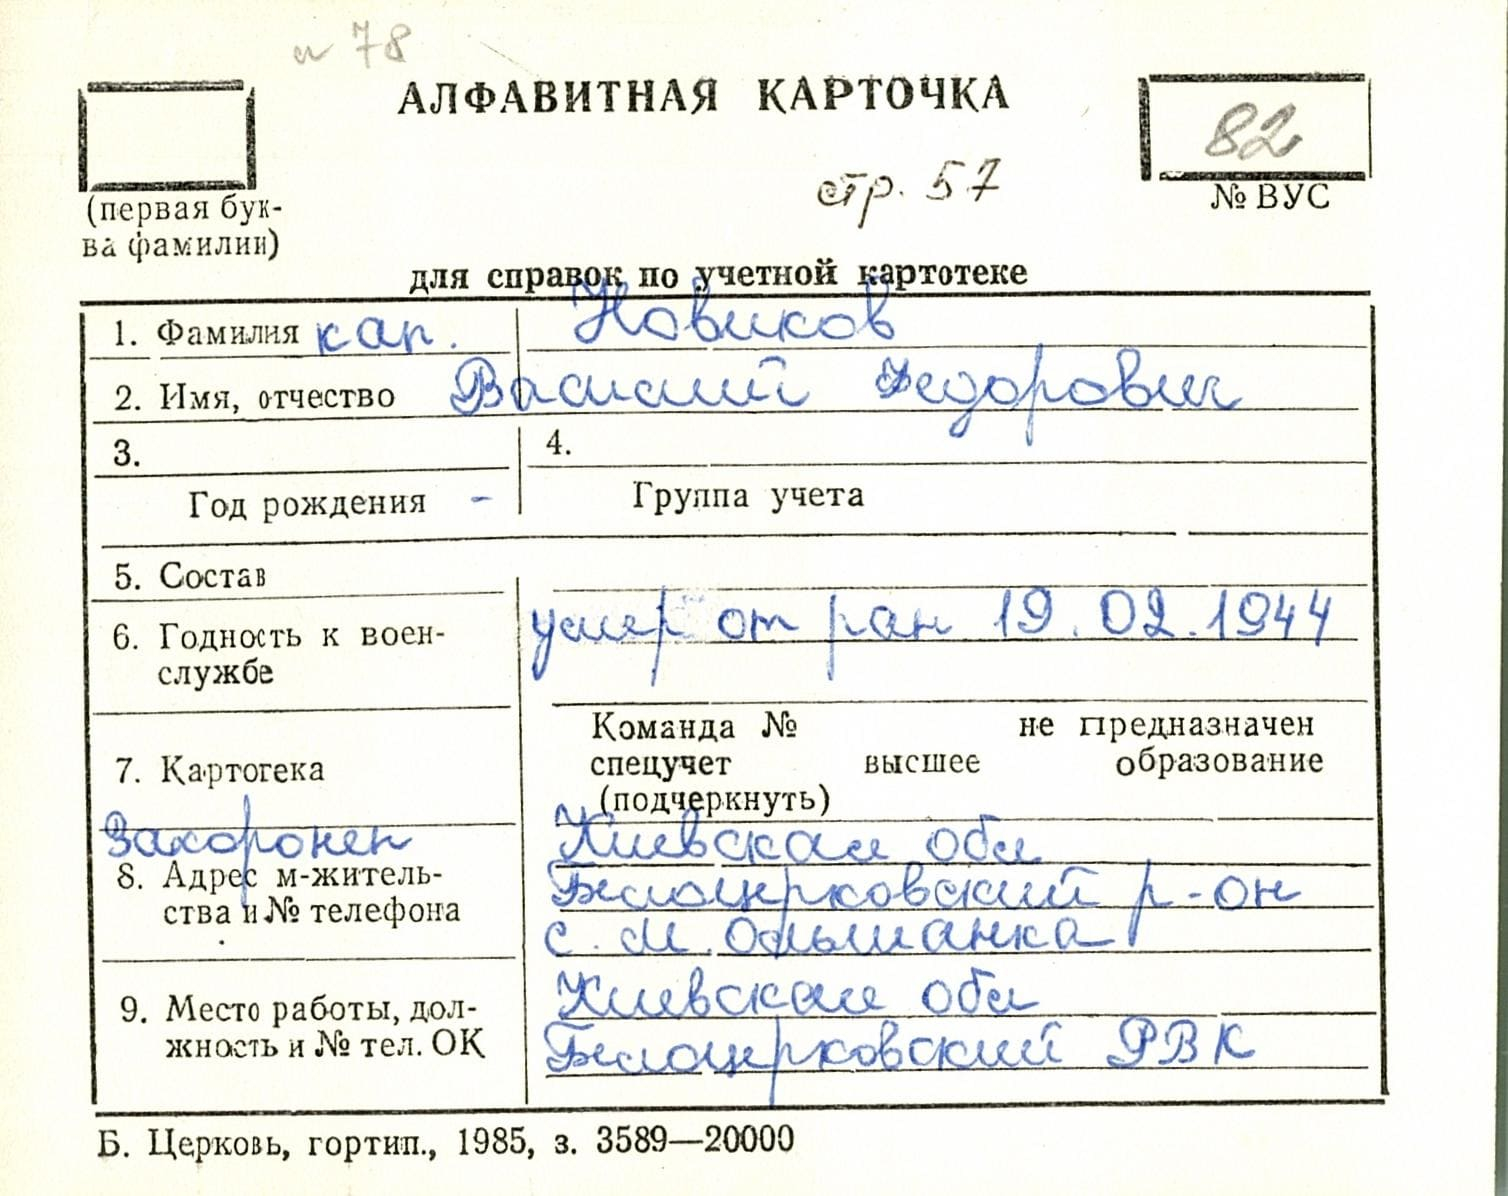 78
АЛФАВИТНАЯ КАРТОЧКА
82
стр. 57
(первая бук-
ва фамилии)
№ ВУС
для справок по учетной картотеке
1. Фамилия кап. Новиков
2. Имя, отчество Василий Федорович
3. 4.
Год рождения - Группа учета
5. Состав
6. Годность к воен-
службе
умер от ран 19.02.1944
Команда № не предназначен
7. Картотека спецучет высшее образование
(подчеркнуть)
Захоронен Киевская обл
8. Адрес м-житель- Белоцерковский р-он
ства и № телефона с. М. Ольшанка
9. Место работы, дол- Киевская обл
жность и № тел. ОК Белоцерковский РВК
Б. Церковь, гортип., 1985, з. 3589—20000